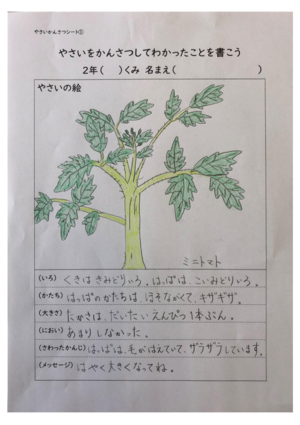 やさいかんさつシート①
やさいをかんさつしてわかったことを書こう
2年(　)くみ 名まえ(　　　　　　)
やさいの絵
ミニトマト
(いろ) くきは きみどりいろ。はっぱは、こいみどりいろ。
(かたち) はっぱのかたちは、ほそながくて、キザギザ。
(大きさ) たかさは、だいたい えんぴつ1本ぶん。
(におい) あまり しなかった。
(さわったかんじ) はっぱは、毛がはえていて、ザラザラしています。
(メッセージ) はやく大きくなってね。